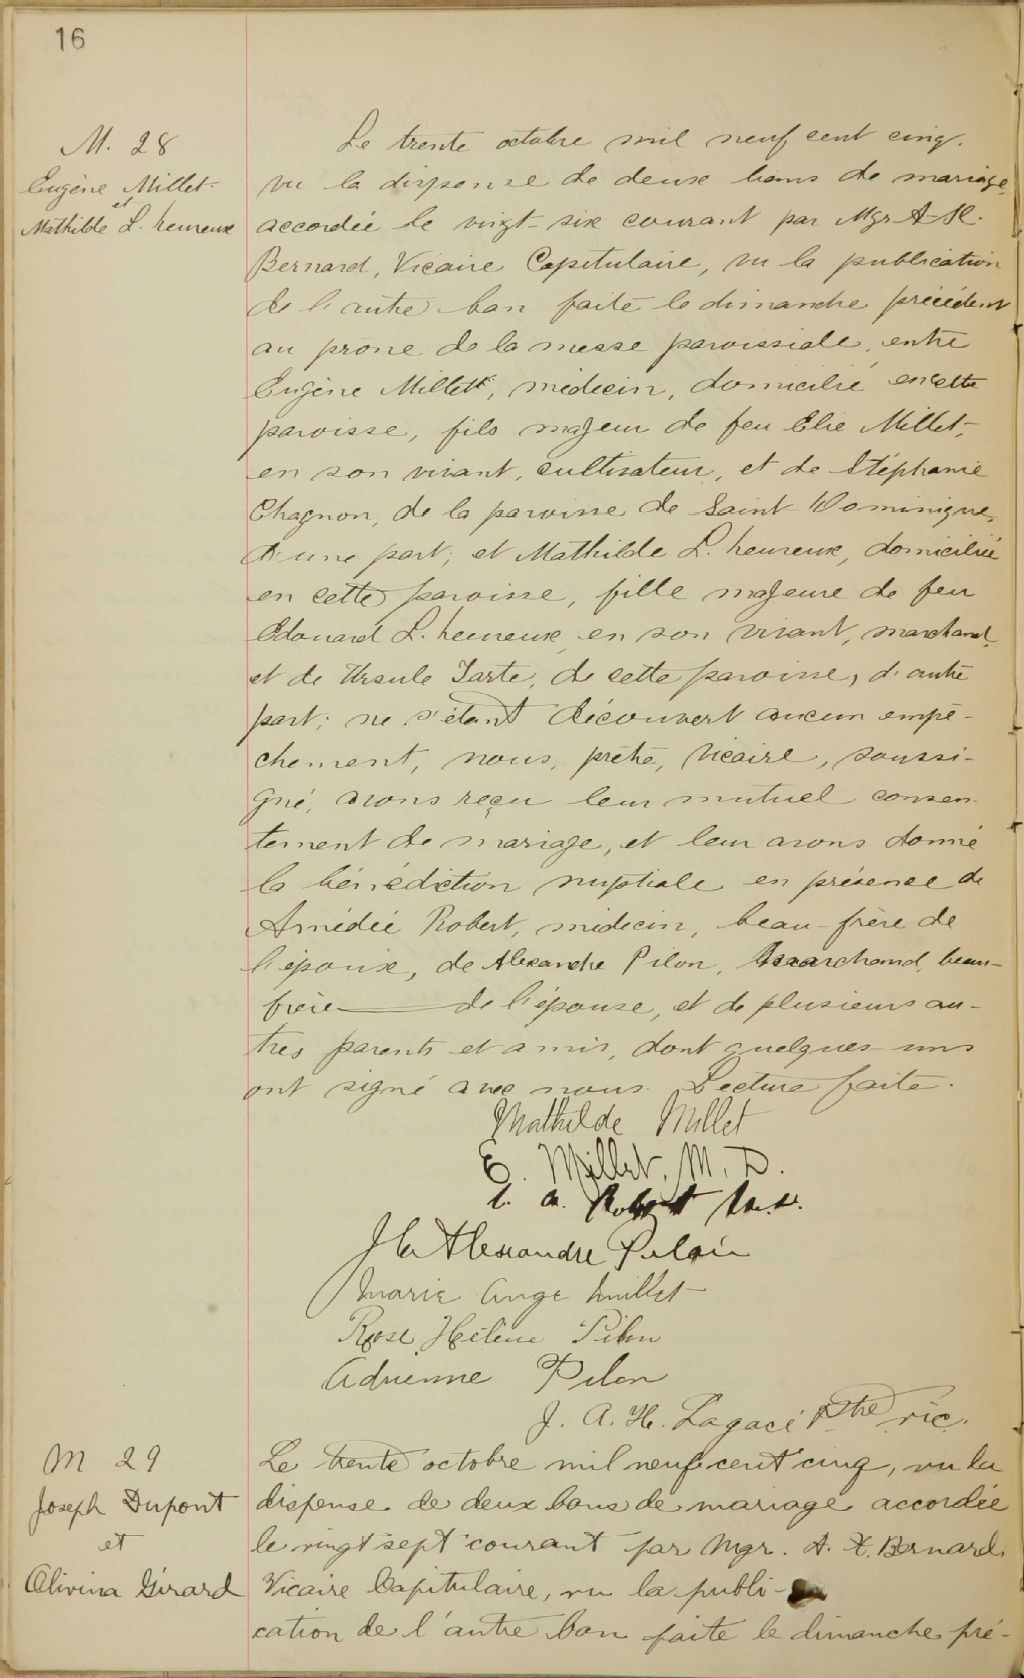 16
M. 28
Eugène Millet
et
Mathilde L'heureux
Le trente octobre mil neuf cent cinq,
vu la dispense de deux bans de mariage
accordée le vingt-six courant par Mgr A-X.
Bernard, Vicaire Capitulaire, vu la publication
de l'autre ban faite le dimanche précédent
au prône de la messe paroissiale, entre
Eugène Millet, médecin, domicilié en cette
paroisse, fils majeur de feu Elie Millet,
en son vivant, cultivateur, et de Stéphanie
Chagnon, de la paroisse de Saint Dominique,
d'une part; et Mathilde L'heureux, domiciliée
en cette paroisse, fille majeure de feu
Edouard L'heureux, en son vivant, marchand,
et de Ursule Tarte, de cette paroisse, d'autre
part; ne s'étant découvert aucun empê-
chement, nous, prêtre, vicaire, soussi-
gné, avons reçu leur mutuel consen-
tement de mariage, et leur avons donné
la bénédiction nuptiale en présence de
Amédée Robert, médecin, beau-frère de
l'époux, de Alexandre Pilon, marchand, beau-
frère de l'épouse, et de plusieurs au-
tres parents et amis, dont quelques uns
ont signé avec nous. Lecture faite.
Mathilde Millet
E. Millet, M. D.
a. Robert
Alexandre Pilon
Marie Ange Millet
Rose Hélène Pilon
Adrienne Pilon
J. A. H. Lagacé Ptre vic.
M 29
Joseph Dupont
et
Alivina Girard
Le trente octobre mil neuf cent cinq, vu la
dispense de deux bans de mariage accordée
le vingt sept courant par Mgr. A. X. Bernard,
Vicaire Capitulaire, vu la publi-
cation de l'autre ban faite le dimanche pré-